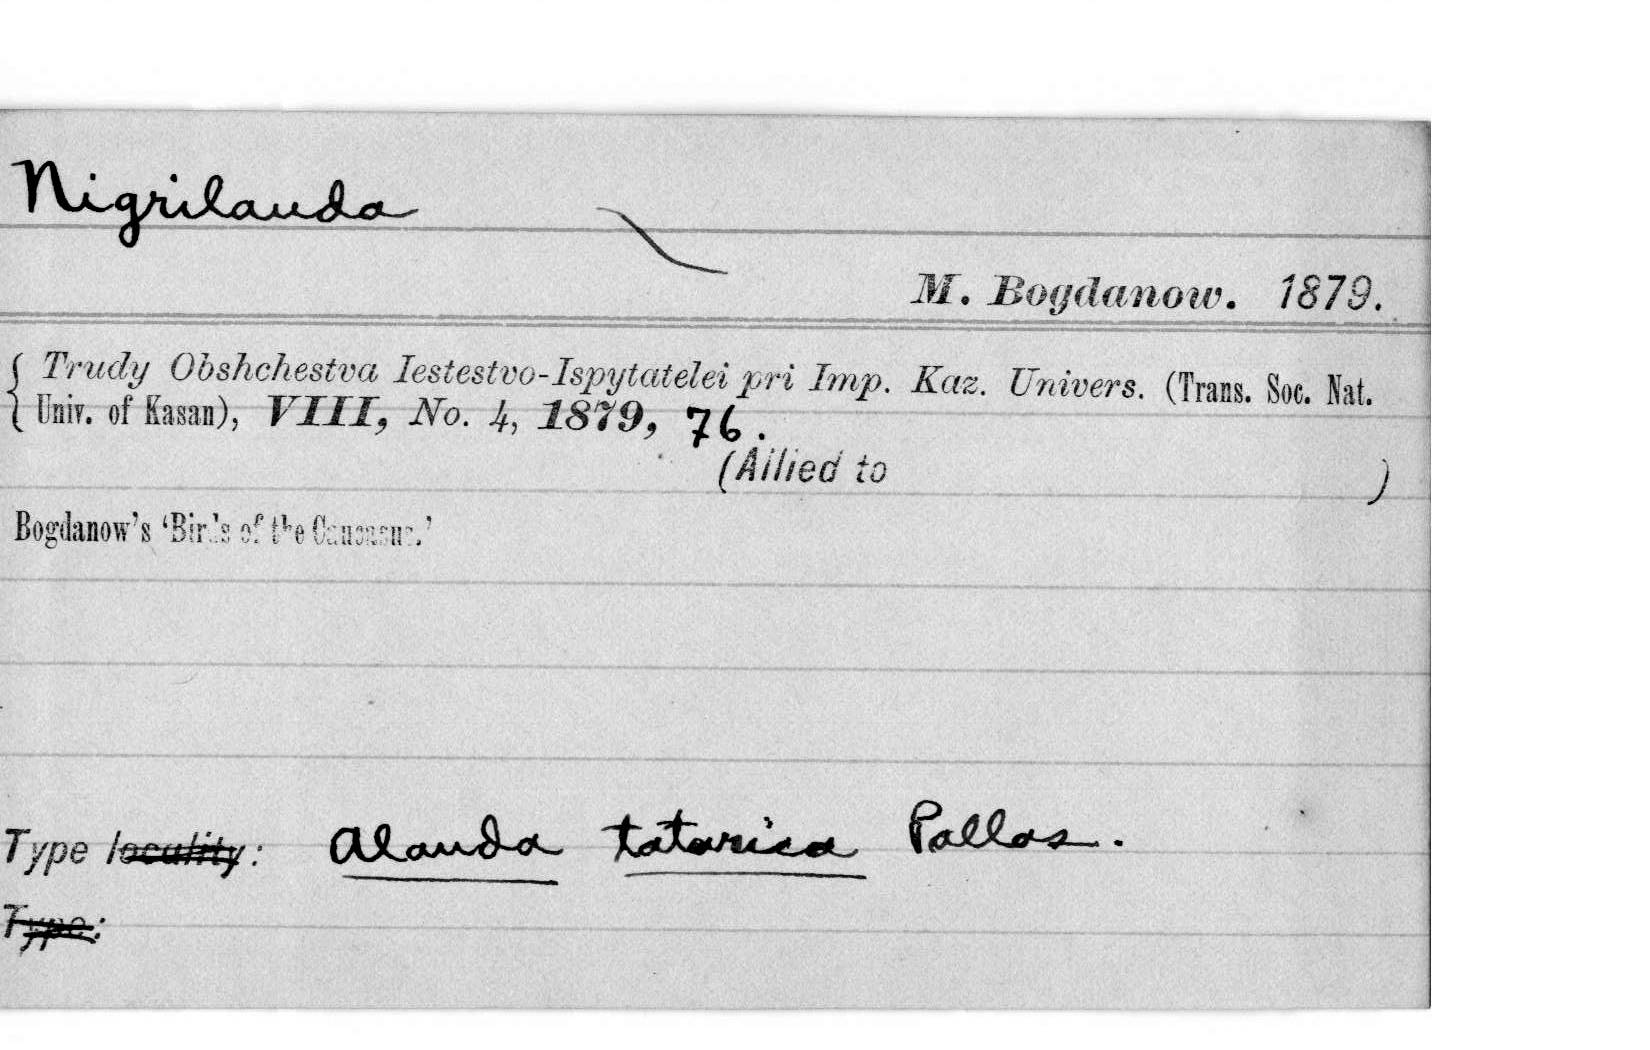 Nigrilauda
M. Bogdanow. 1879.
{ Trudy Obshchestva Iestestvo-Ispytatelei pri Imp. Kaz. Univers. (Trans. Soc. Nat.
{ Univ. of Kasan), VIII, No. 4, 1879, 76.
(Allied to )
Bogdanow's 'Birds of the Caucasus.'
Type locality: Alauda tatarica Pallas.
Type: